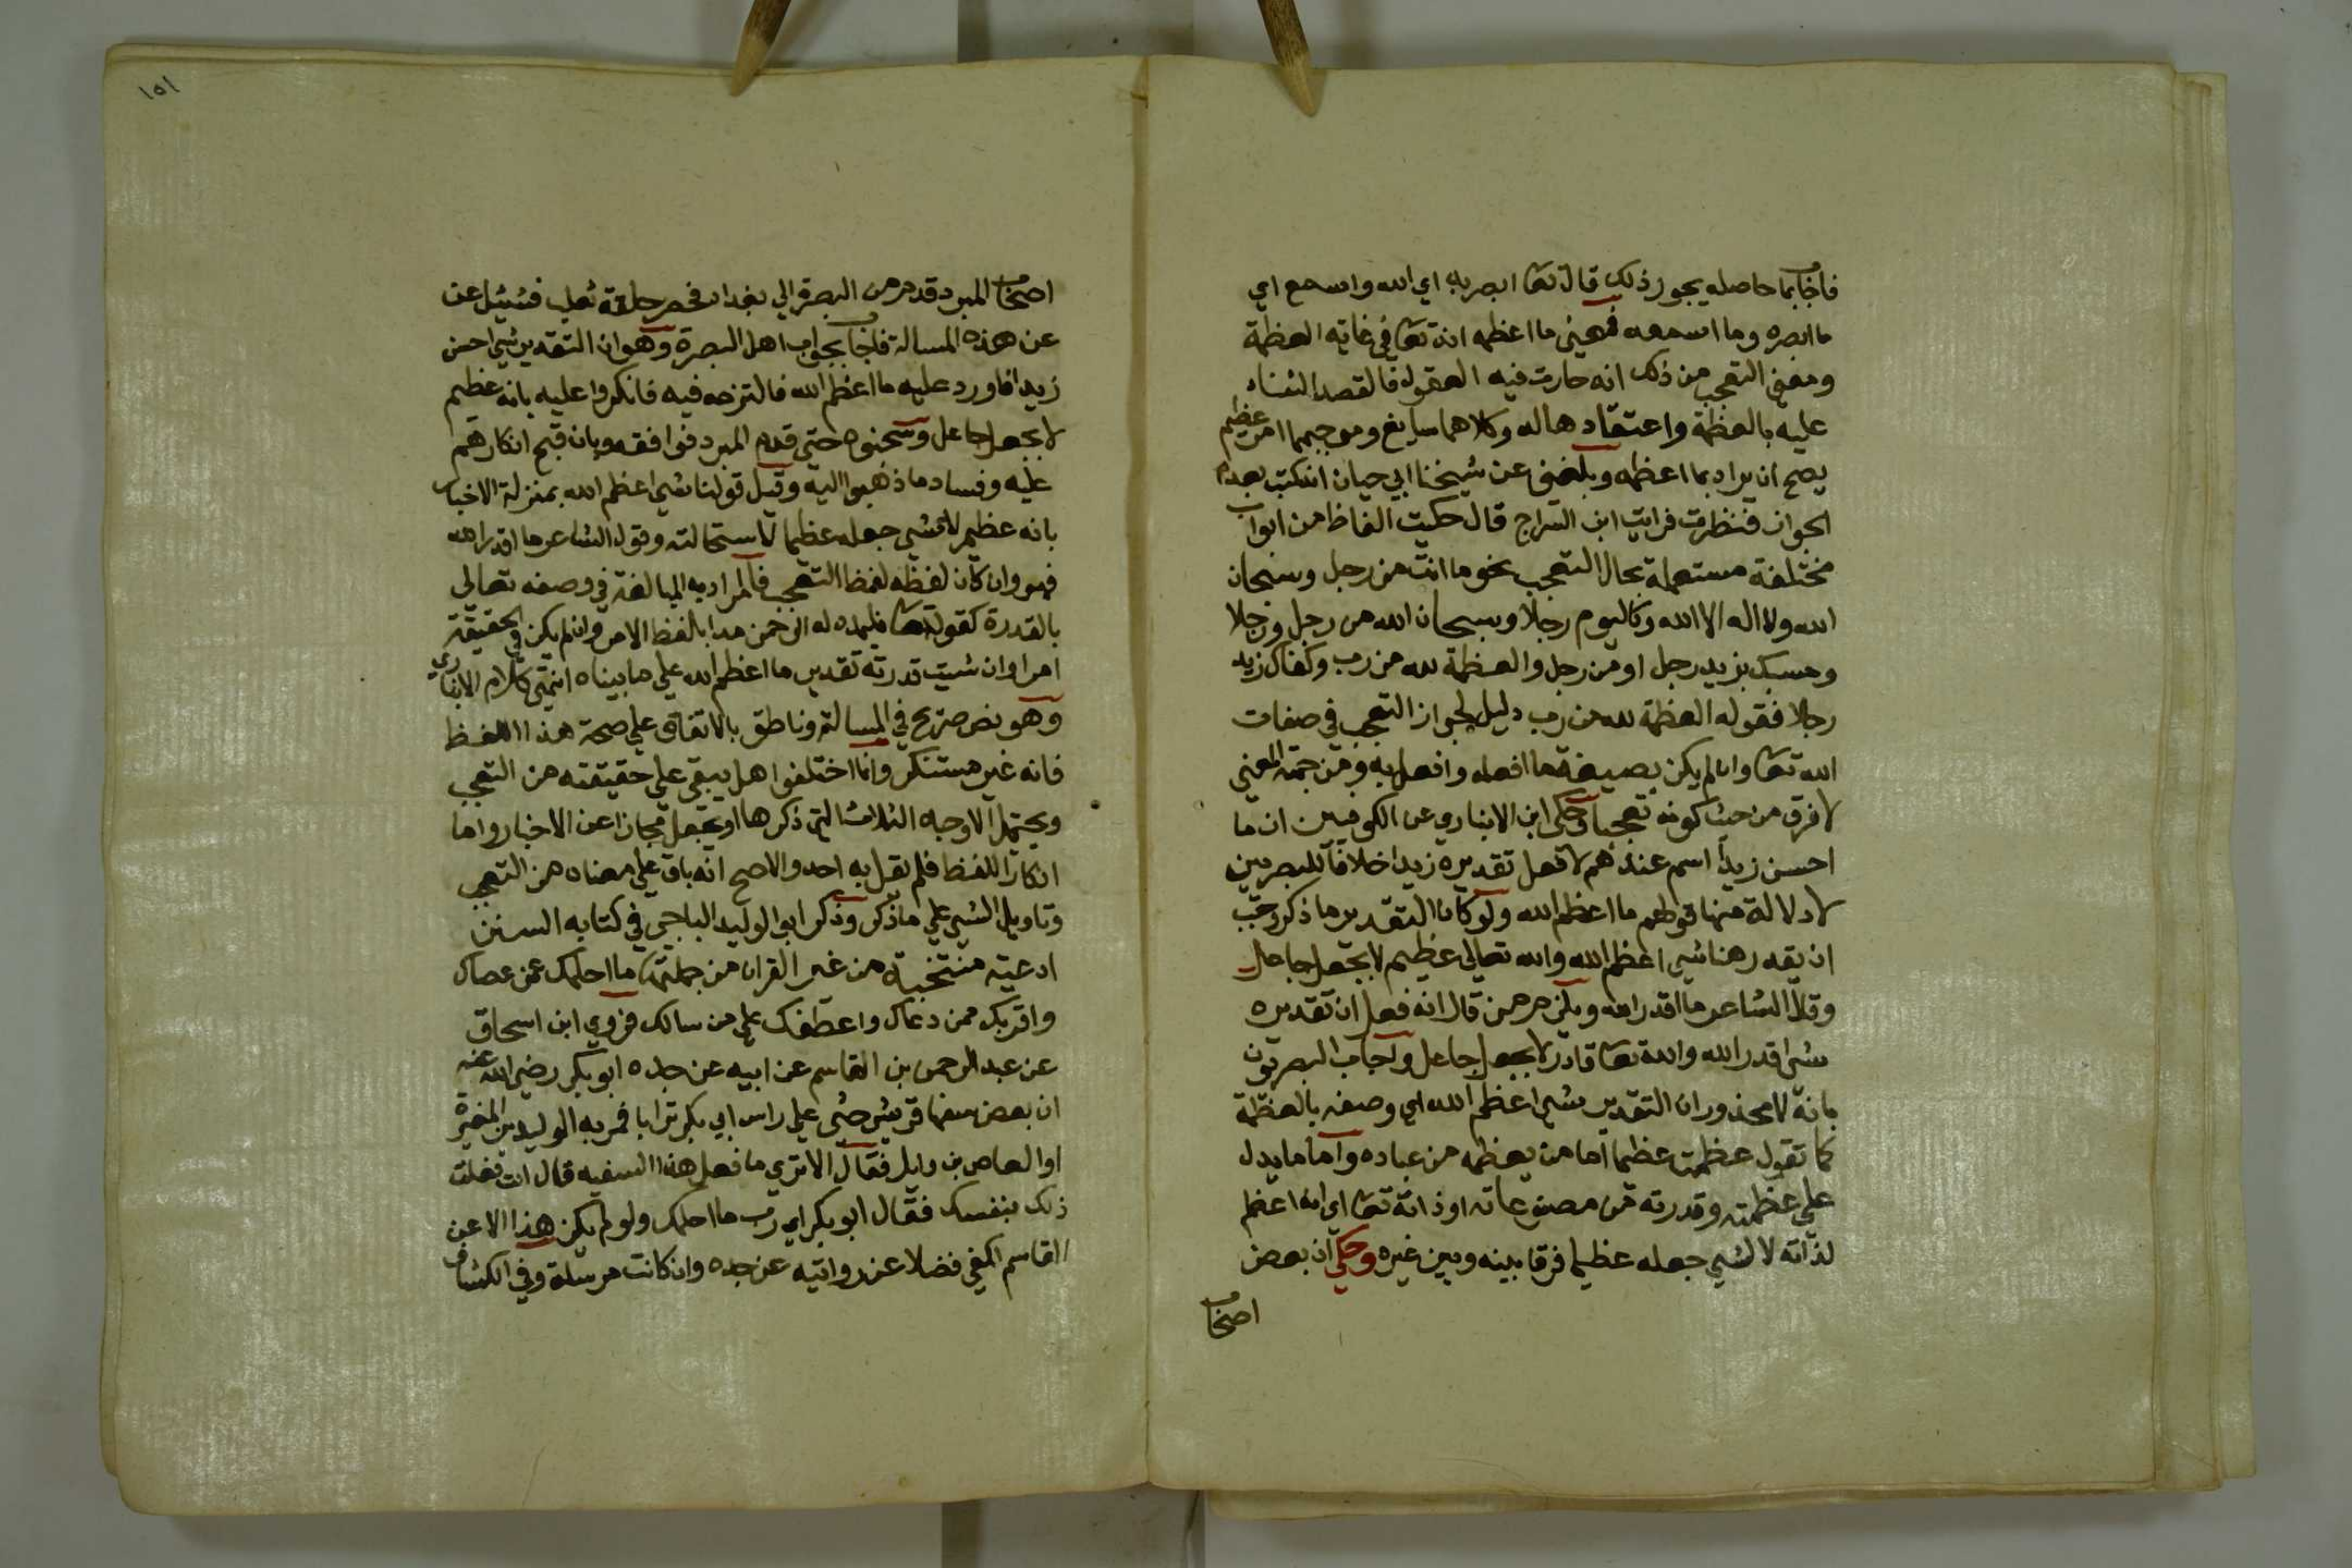 فاجاب بما حاصله يجوز ذلك قال تعا ابصر به اي الله واسمع اي
ما ابصره وما اسمعه فمعنى ما اعظمه انه تعا في غاية العظمة
ومعنى التعجب من ذلك انه حارت فيه العقول فالقصد الثناء
عليه بالعظمة واعتقادها له وكلاهما سايغ وموجبهما امر عظيم
يصح ان يراد بما اعظمه وبلغني عن شيخنا ابي حيان انه كتب بعدم
الجواز فنظرت فرايت ابن السراج قال حكيت الفاظ من ابواب
مختلفة مستعملة بحال التعجب نحو ما انت من رجل وسبحان
الله ولا اله الا الله وكاليوم رجلا وسبحان الله من رجل ورجلا
وحسبك بزيد رجل او من رجل والعظمة لله من رب وكفاك زيد
رجلا فقوله العظمة لله من رب دليل لجواز التعجب في صفات
الله تعا وان لم يكن بصيغة ما افعله وافعل به ومن جهة المعنى
لا فرق من حيث كونه تعجبا وحكى ابن الانباري عن الكوفيين ان ما
احسن زيدا اسم عندهم لا فعل تقديره زيدا خلافا للبصريين
لا دلالة منها قولهم ما اعظم الله ولو كان التقدير ما ذكر وجب
ان يقدر هنا شي اعظم الله والله تعالى عظيم لا بجعل جاعل
وقال الشاعر ما اقدر الله ويلزم من قال انه فعل ان تقديره
شي اقدر الله والله تعا قادر لا بجعل جاعل واجاب البصريون
بانه لا محذور ان التقدير شي اعظم الله اي وصفه بالعظمة
كما تقول عظمت عظيما اما من يعظمه من عباده واما ما يدل
على عظمته وقدرته من مصنوعاته او ذاته تعا اي انه اعظم
لذاته لا لشي جعله عظيما فرقا بينه وبين غيره وحكي ان بعض
اصحاب
١٥١
اصحاب المبرد قدم من البصرة الي بغداد فحضر حلقة ثعلب فسئل عن
عن هذه المسالة فاجاب بجواب اهل البصرة وهو ان التقدير شي احسن
زيدا فاورد عليه ما اعظم الله فالتزمه فيه فانكروا عليه بانه عظيم
لا بجعل جاعل وسحبوه حتى قدم المبرد فوافقه وبان قبح انكارهم
عليه وفساد ما ذهبوا اليه وقيل قولنا شي اعظم الله بمنزلة الاخبار
بانه عظيم لا شي جعله عظيما لاستحالته وقول الشاعر ما اقدر الله
فهو وان كان لفظه لفظ التعجب فالمراد به المبالغة في وصفه تعالى
بالقدرة كقوله تعا فليمدد له الرحمن مدا بلفظ الامر وان لم يكن في الحقيقة
امرا وان شيت قدرته تقدير ما اعظم الله علي ما بيناه انتهى كلام الانباري
وهو نص صريح في المسالة وناطق بالاتفاق علي صحة هذا اللفظ
فانه غير مستنكر وانما اختلفوا هل يبقى علي حقيقته من التعجب
ويحتمل الاوجه الثلاث التي ذكرها او يجعل مجازا عن الاخبار واما
انكار اللفظ فلم يقل به احد والاصح انه باق علي معناه من التعجب
وتاويل الشي علي ما ذكر وذكر ابو الوليد الباجي في كتابه السنن
ادعية منتخبة من غير القران من جملتها ما احلمك عمن عصاك
واقربك ممن دعاك واعطفك علي من سالك وروي ابن اسحاق
عن عبد الرحمن بن القاسم عن ابيه عن جده ابو بكر رضي الله عنه
ان بعض سفها قريش حثي علي راس ابي بكر ترابا فمر به الوليد بن المغيرة
او العاص بن وايل فقال الا تري ما فعل هذا السفيه قال انت فعلت
ذلك بنفسك فقال ابو بكر اي رب ما احلمك ولو لم يكن هذا الا عن
القاسم لكفي فضلا عن روايته عن جده وان كانت مرسلة وفي الكشاف